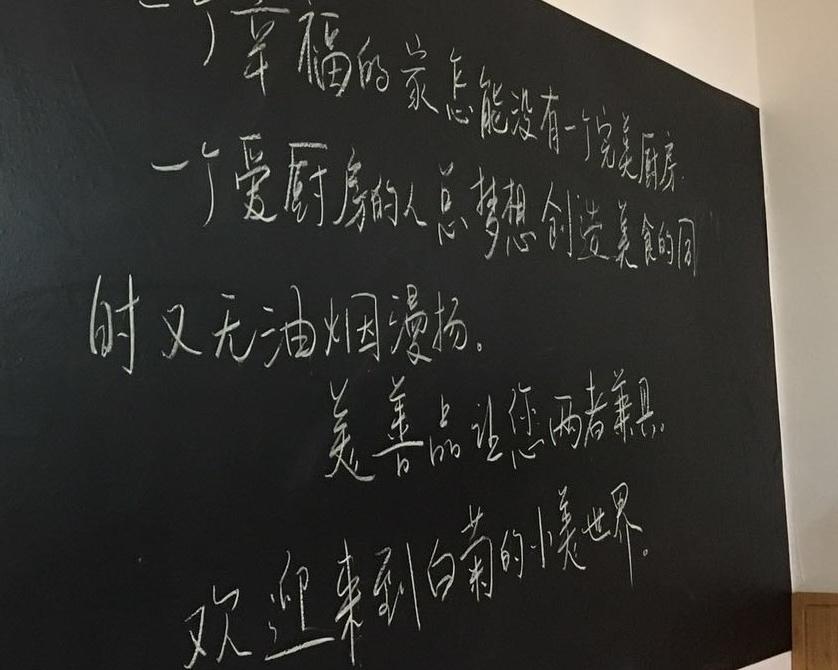 一个幸福的家怎能没有一个完美厨房.
一个爱厨房的人总梦想创造美食的同
时又无油烟漫扬。
美善品让您两者兼具.
欢迎来到白菊的小美世界。